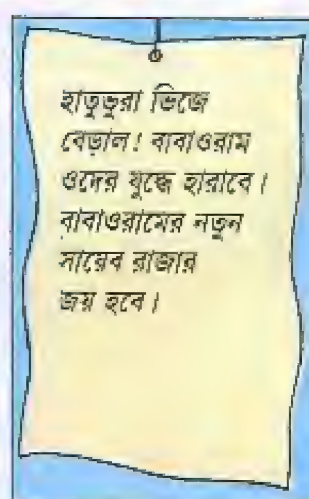 হাতুভুরা ভিজে
বেড়াল! বাবাওরাম
ওদের যুদ্ধে হারাবে।
বাবাওরামের নতুন
সায়েব রাজার
জয় হবে।